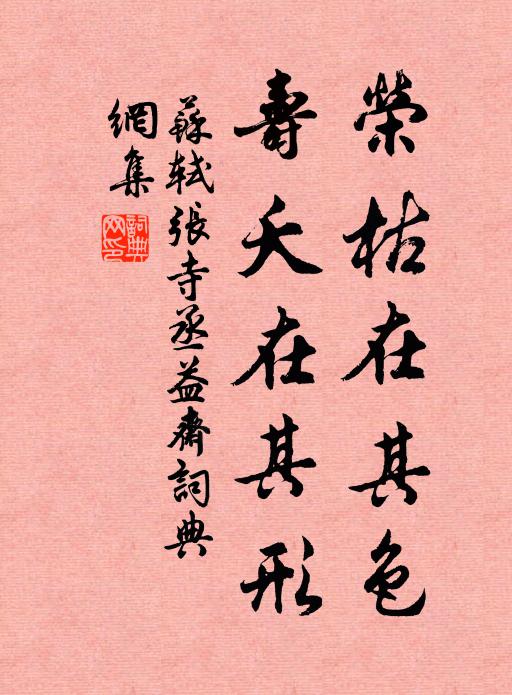 榮枯在其色
壽夭在其形
蘇軾張寺丞益齋詞典
網集
詞典網印